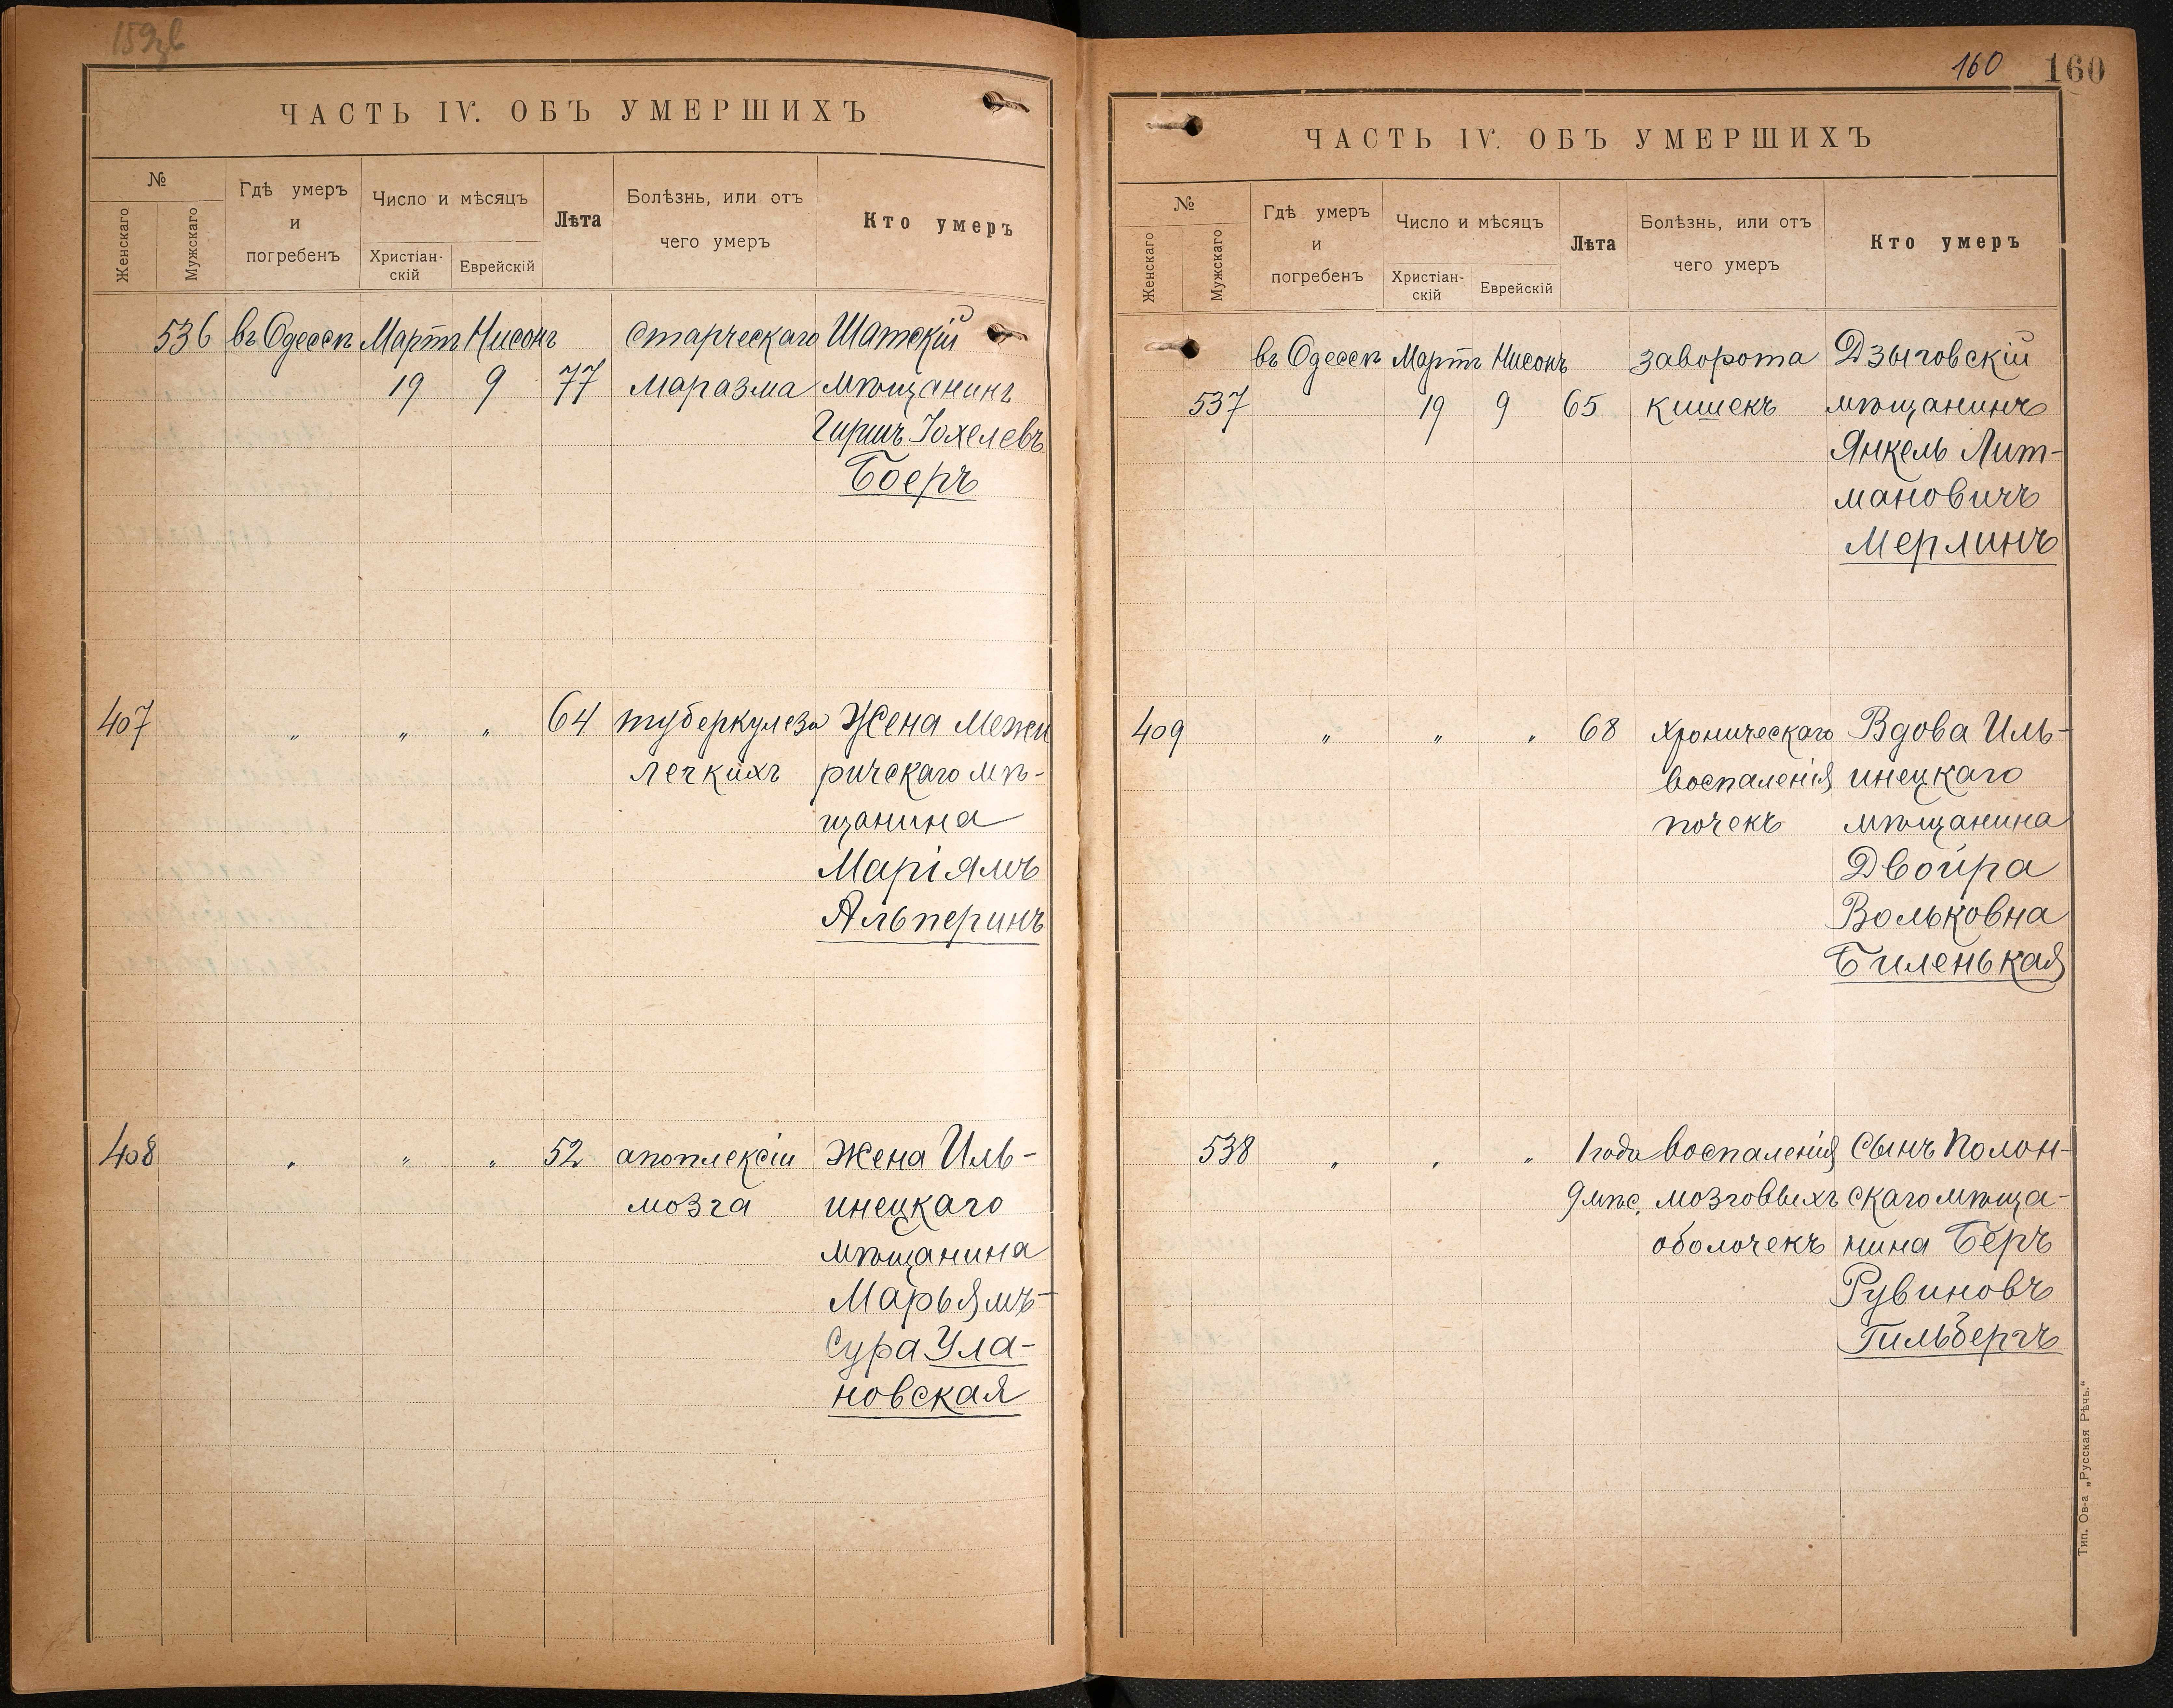 ЧАСТЬ IV. ОБЪ УМЕРШИХЪ
№
Женскаго
Мужскаго
Гдѣ умеръ
и
погребенъ
Число и мѣсяцъ
Христіан-
скій
Еврейскій
Лѣта
Болѣзнь, или отъ
чего умеръ
Кто умеръ
536 въ Одессѣ Мартъ Нисонъ старческаго Шатскій
19 9 77 маразма мѣщанинъ
Гиршъ Іохелевъ
Боеръ
407 " " " 64 туберкулеза Жена Межи
легкихъ ричскаго мѣ-
щанина
Маріямъ
Альперинъ
408 " " " 52 апоплексіи Жена Иль-
мозга инецкаго
мѣщанина
Марьямъ-
Сура Ула-
новская
160 160
ЧАСТЬ IV. ОБЪ УМЕРШИХЪ
№
Женскаго
Мужскаго
Гдѣ умеръ
и
погребенъ
Число и мѣсяцъ
Христіан-
скій
Еврейскій
Лѣта
Болѣзнь, или отъ
чего умеръ
Кто умеръ
въ Одессѣ Мартъ Нисонъ заворота Дзыговскій
537 19 9 65 кишекъ мѣщанинъ
Янкель Лит-
мановичъ
Мерлинъ
409 " " " 68 хроническаго Вдова Иль-
воспаленія инецкаго
почекъ мѣщанина
Двойра
Вольковна
Биленькая
538 " " " 1 года воспаленія Сынъ Полон-
9 мѣс. мозговыхъ скаго мѣща-
оболочекъ нина Беръ
Рувиновъ
Гильбергъ
Тип. Ов-а „Русская Рѣчь."